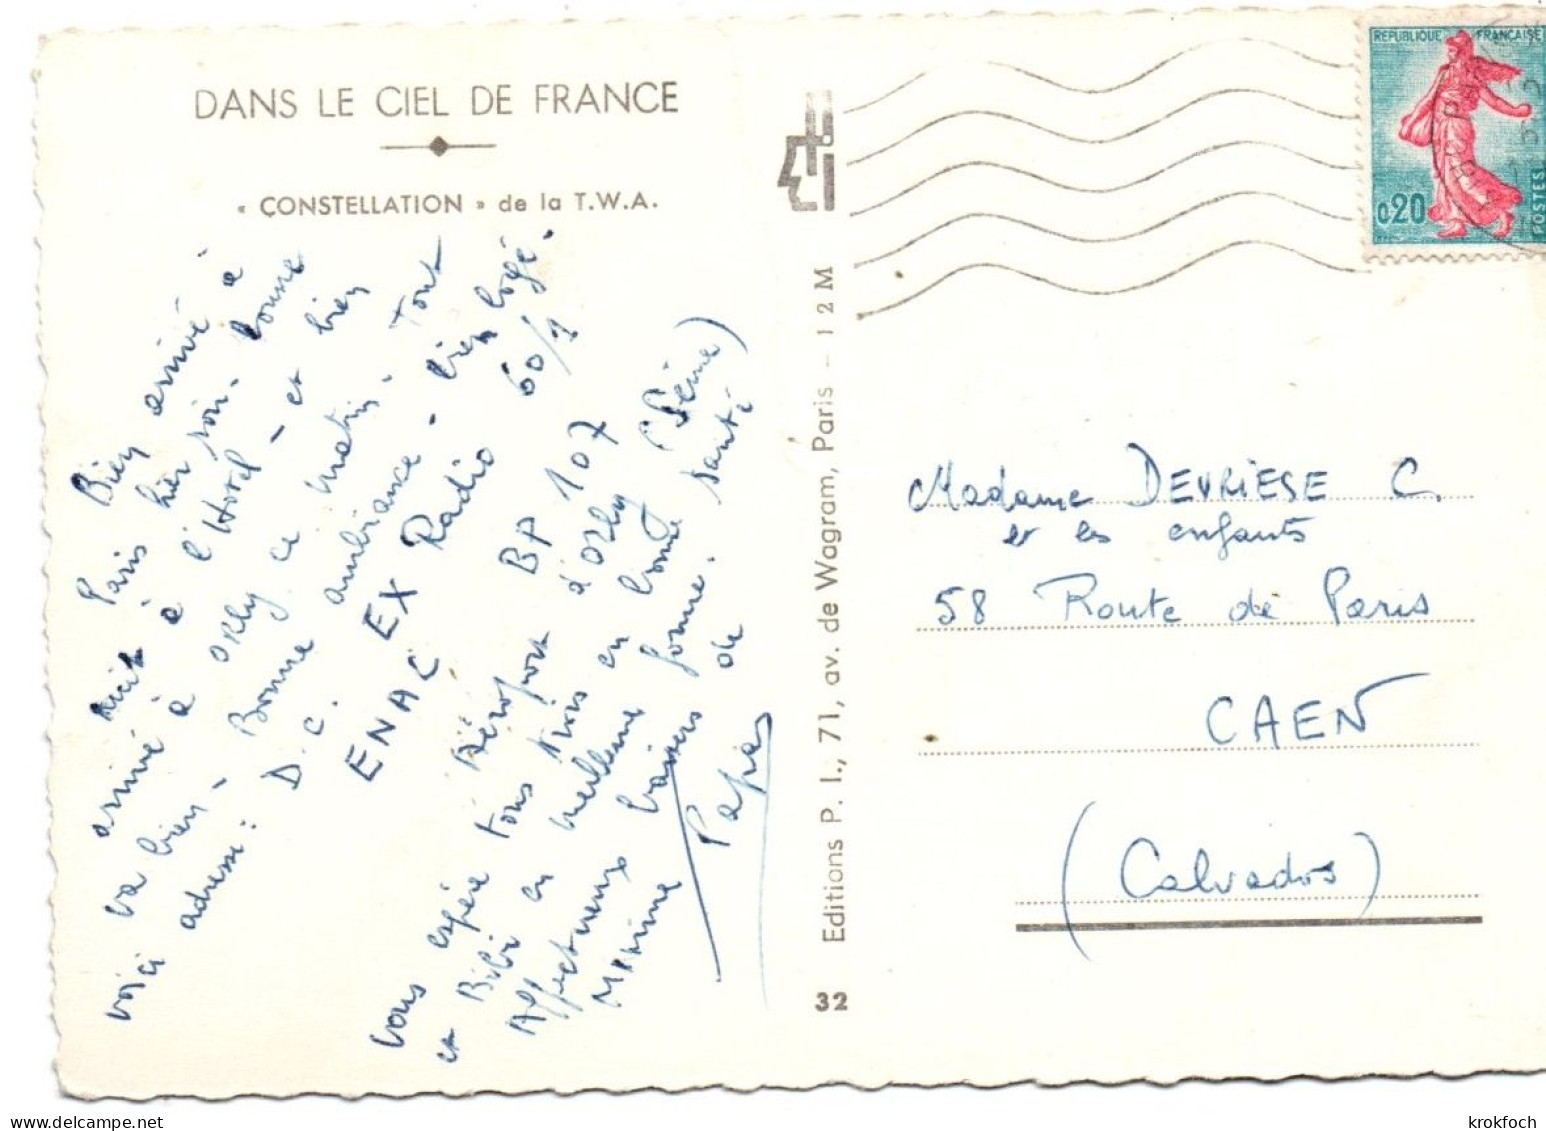 DANS LE CIEL DE FRANCE
« CONSTELLATION » de la T.W.A.
Bien arrivé à
Paris hier soir. bonne
nuit à l'Hotel - et bien
arrivé à ORLY ce matin. Tout
va bien - Bonne ambiance - bien logé.
voici adresse : D. C. ENAC EX Radio 60/1
Aéroport d'ORLY (Seine)
BP 107
vous espère tous trois en bonne santé
et Bibi en meilleure forme.
Affectueux baisers de
Papa
Editions P. I., 71, av. de Wagram, Paris - 12 M
32
REPUBLIQUE FRANÇAISE
0,20
POSTES
Madame DEVRIESE C.
et les enfants
58 Route de Paris
CAEN
(Calvados)
krokfoch